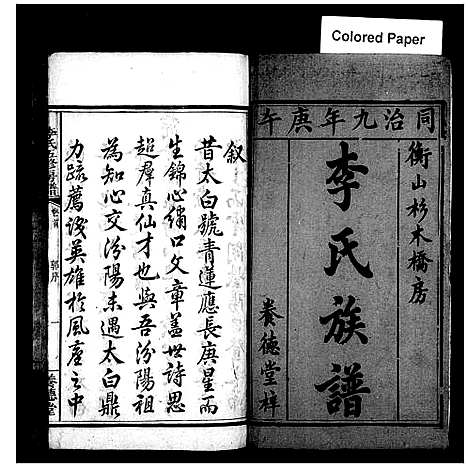 Colored Paper
同治九年庚午
衡山杉木橋房
李氏族譜
養德堂梓
叙
昔太白號青蓮應長庚星而
生錦心繡口文章蓋世詩思
超羣真仙才也與吾汾陽祖
為知心交汾陽未遇太白鼎
力疏薦識英雄於風塵之中
卷首
郭序
一
養德堂